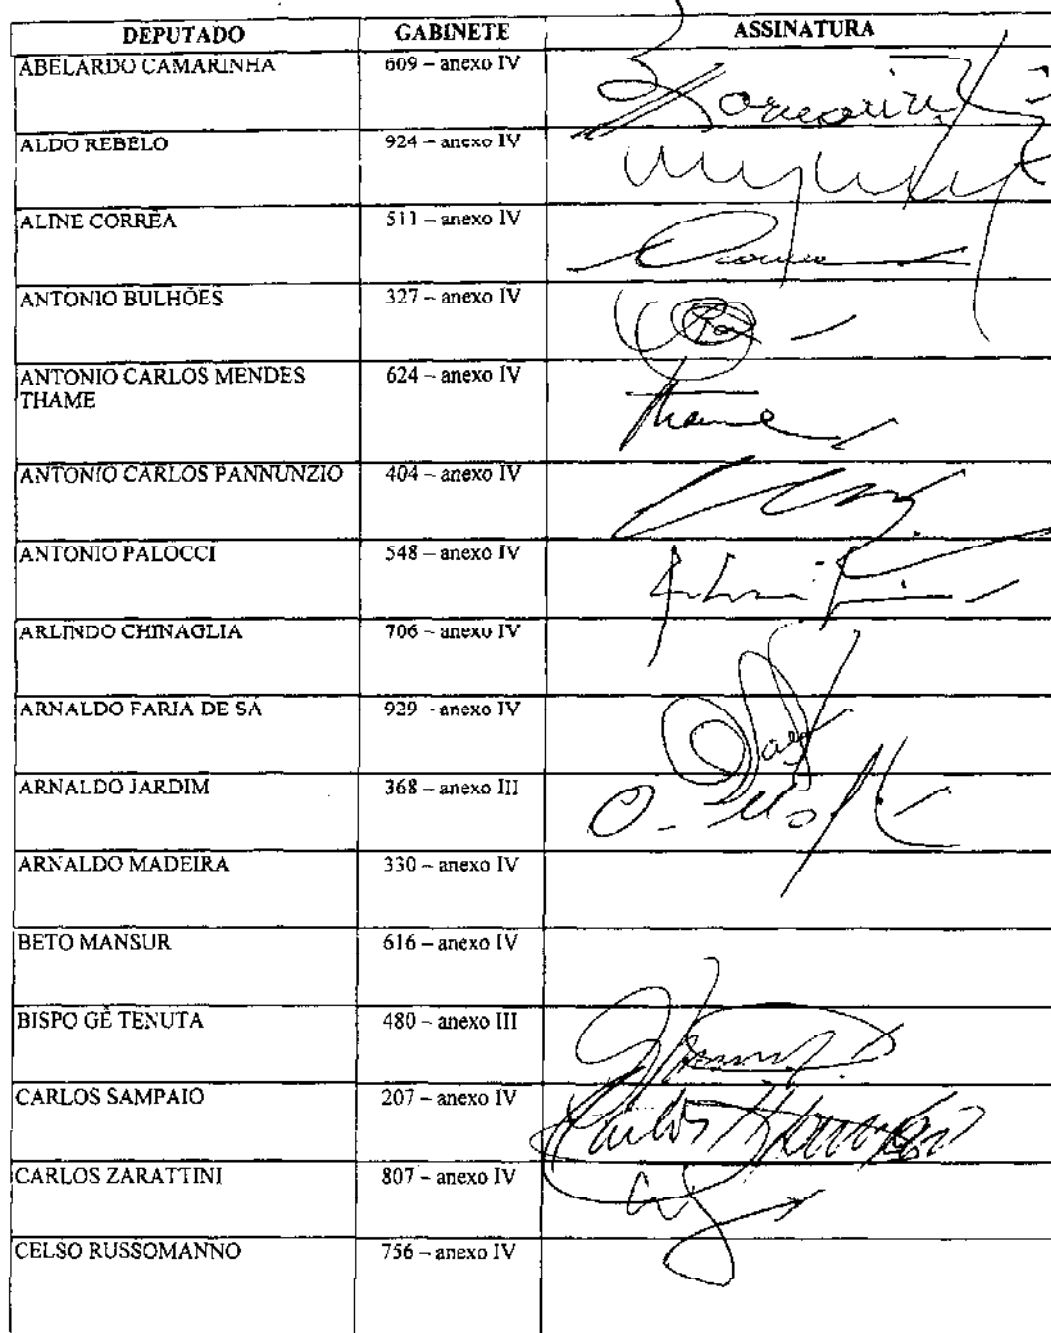 DEPUTADO GABINETE ASSINATURA
ABELARDO CAMARINHA 609 – anexo IV
ALDO REBELO 924 – anexo IV
ALINE CORRÊA 511 – anexo IV
ANTONIO BULHÕES 327 – anexo IV
ANTONIO CARLOS MENDES 624 – anexo IV
THAME
Thame
ANTONIO CARLOS PANNUNZIO 404 – anexo IV
ANTONIO PALOCCI 548 – anexo IV
ARLINDO CHINAGLIA 706 – anexo IV
ARNALDO FARIA DE SÁ 929 - anexo IV
ARNALDO JARDIM 368 – anexo III
ARNALDO MADEIRA 330 – anexo IV
BETO MANSUR 616 – anexo IV
BISPO GÊ TENUTA 480 – anexo III
CARLOS SAMPAIO 207 – anexo IV
Carlos Sampaio
CARLOS ZARATTINI 807 – anexo IV
CELSO RUSSOMANNO 756 – anexo IV